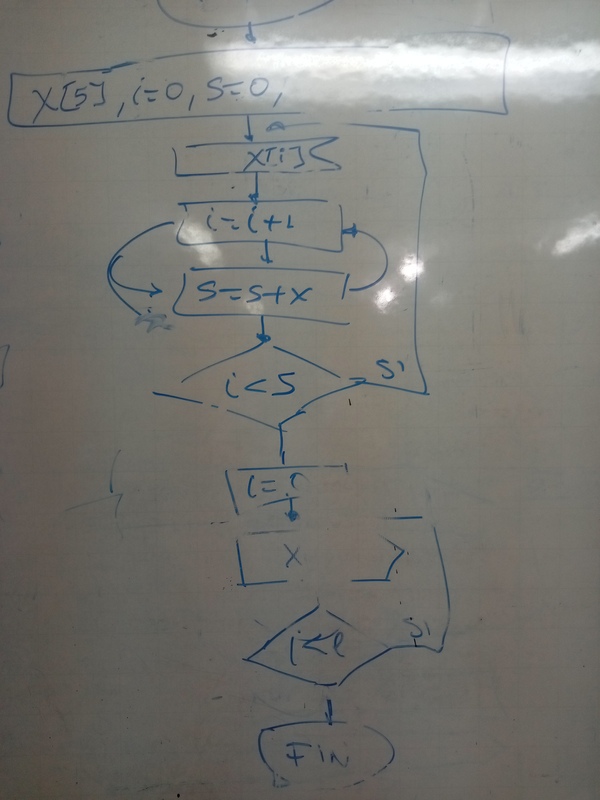 X[5], i=0, S=0,
X[i]
i=i+1
S=S+X
i<5
Si
X
Si
FIN